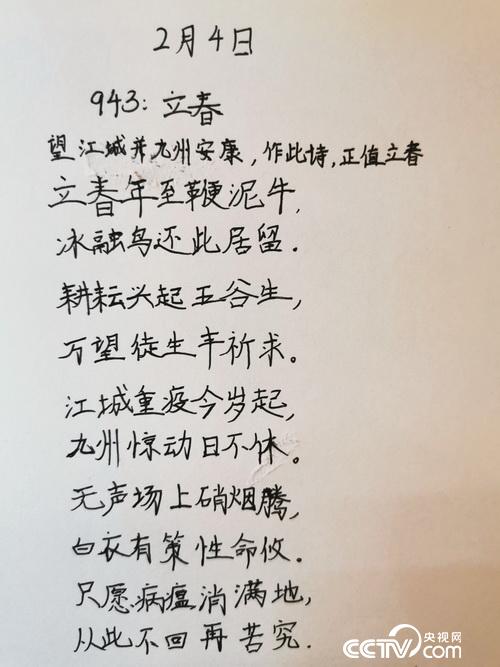 2月4日
943:立春
望江城并九州安康,作此诗,正值立春
立春年至鞭泥牛,
冰融鸟还此居留.
耕耘兴起五谷生,
万望徒生丰祈求。
江城重疫今岁起,
九州惊动日不休。
无声场上硝烟腾,
白衣有策性命攸.
只愿病瘟消满地,
从此不回再苦究.
CCTV.com 央视网